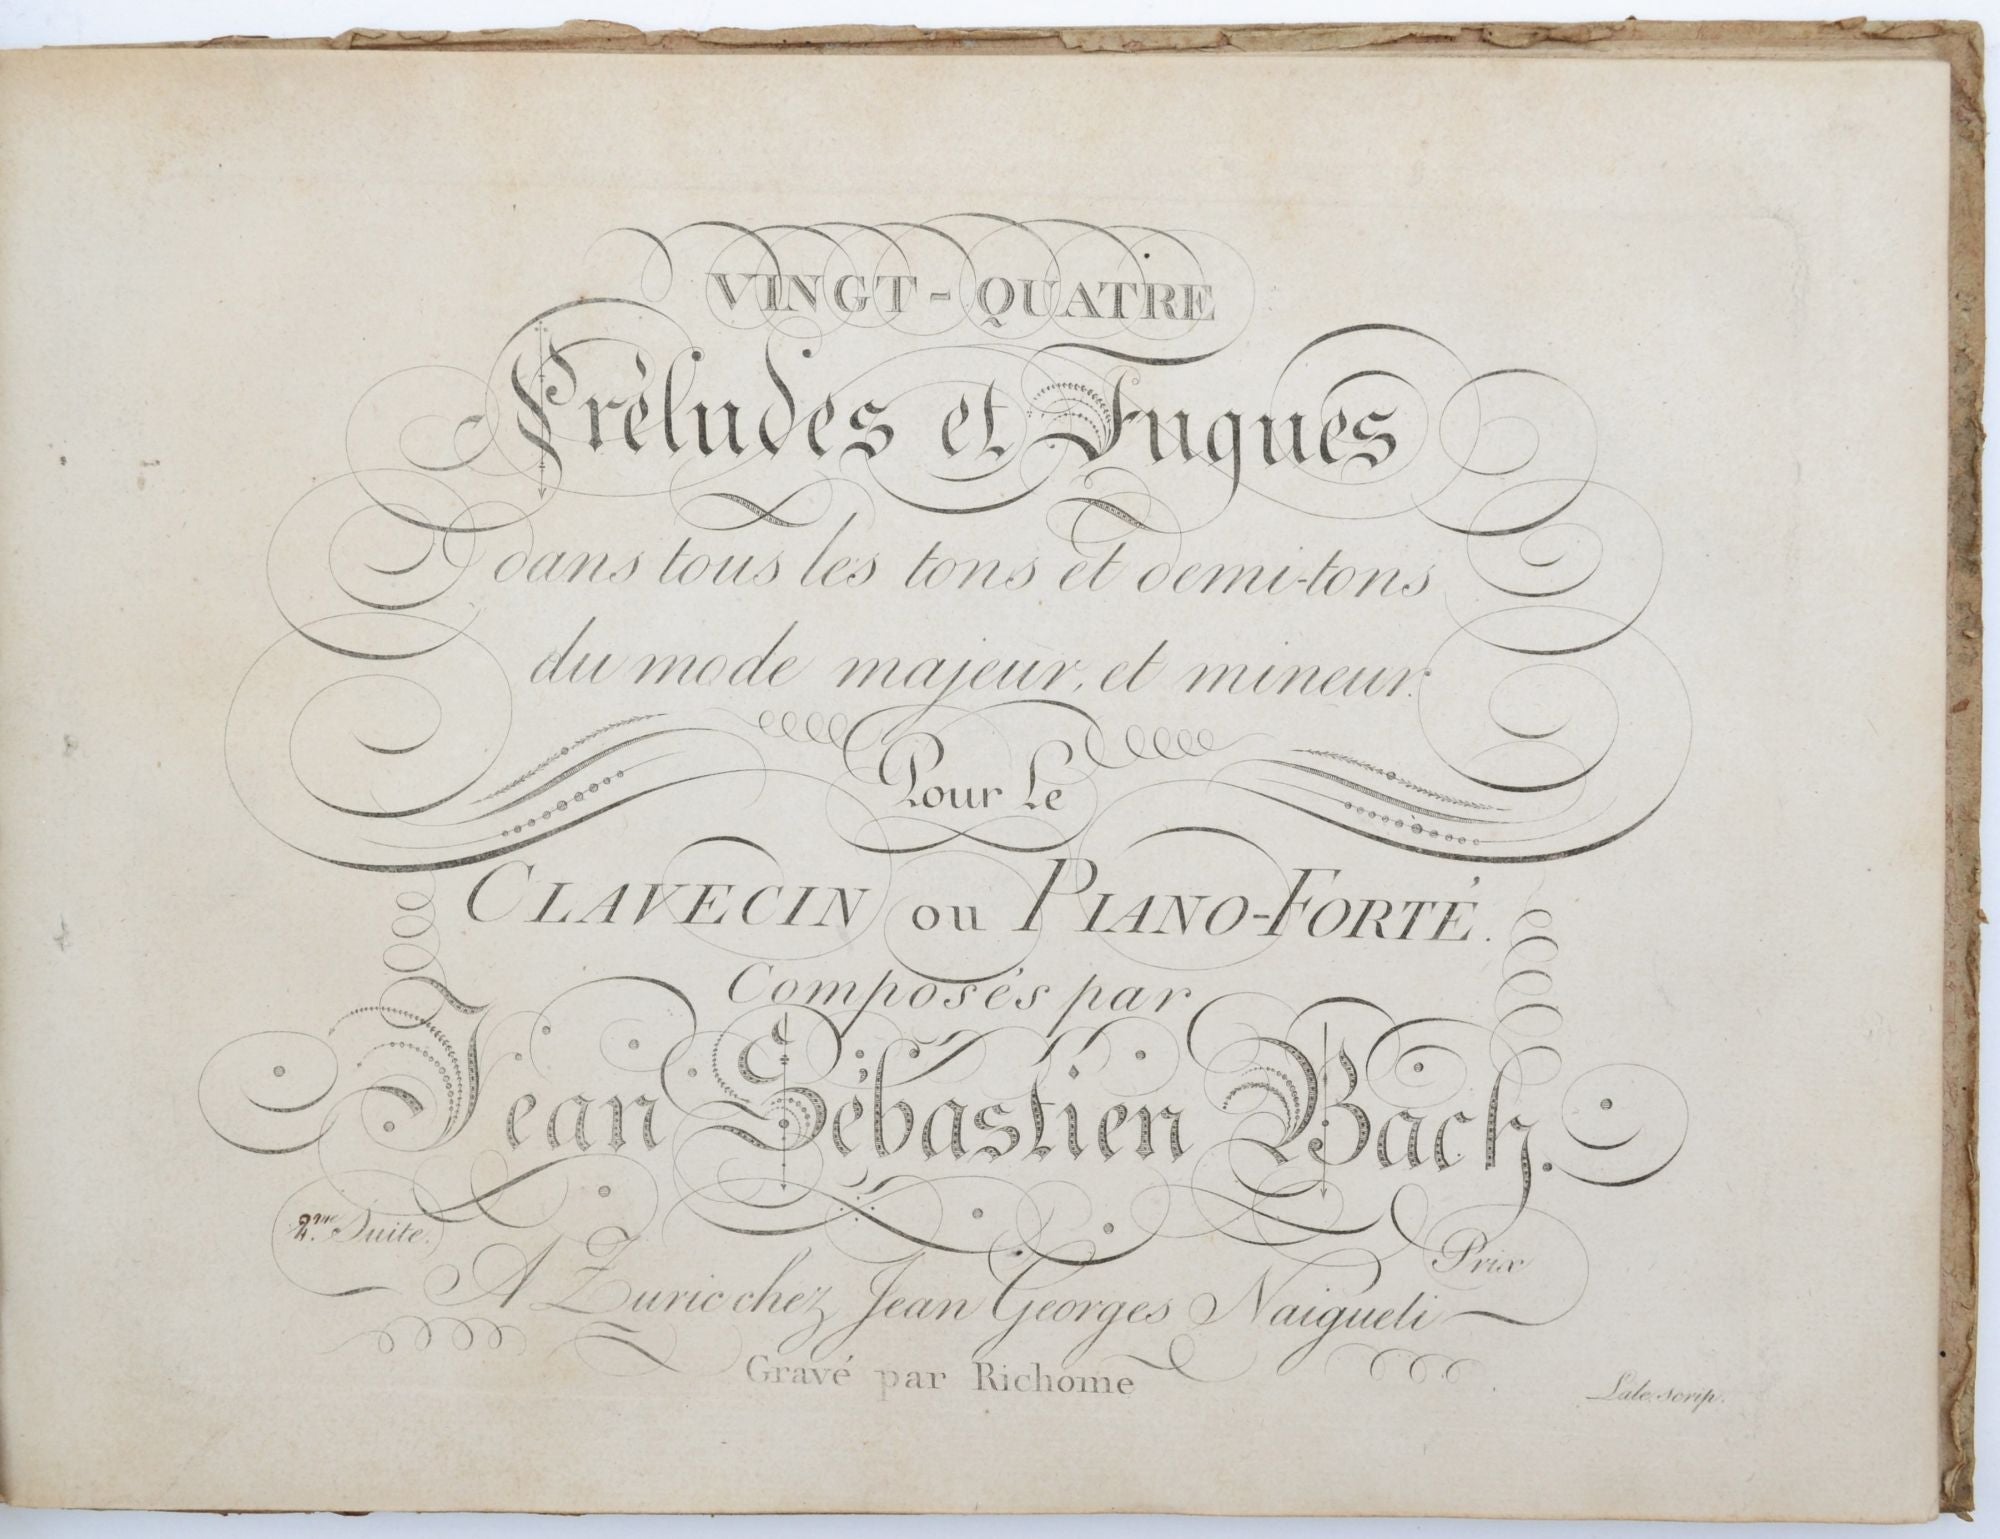 VINGT-QUATRE
Préludes et Fugues
dans tous les tons et demi-tons
du mode majeur, et mineur.
Pour Le
CLAVECIN ou PIANO-FORTÉ.
Composés par
Jean Sébastien Bach.
2.me Suite.
Prix
A Zuric chez Jean Georges Naigueli
Gravé par Richome
Lale scrip.